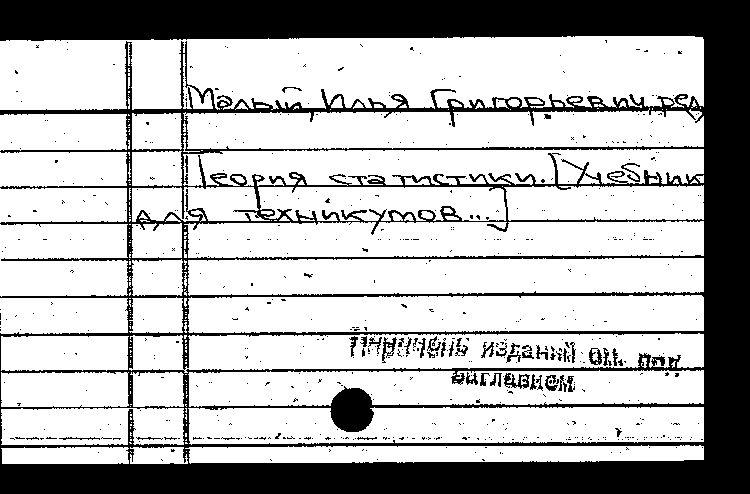 Малый, Илья Григорьевич, ред
Теория статистики. [Учебник
для техникумов...]
Перечень изданий см. под
заглавием